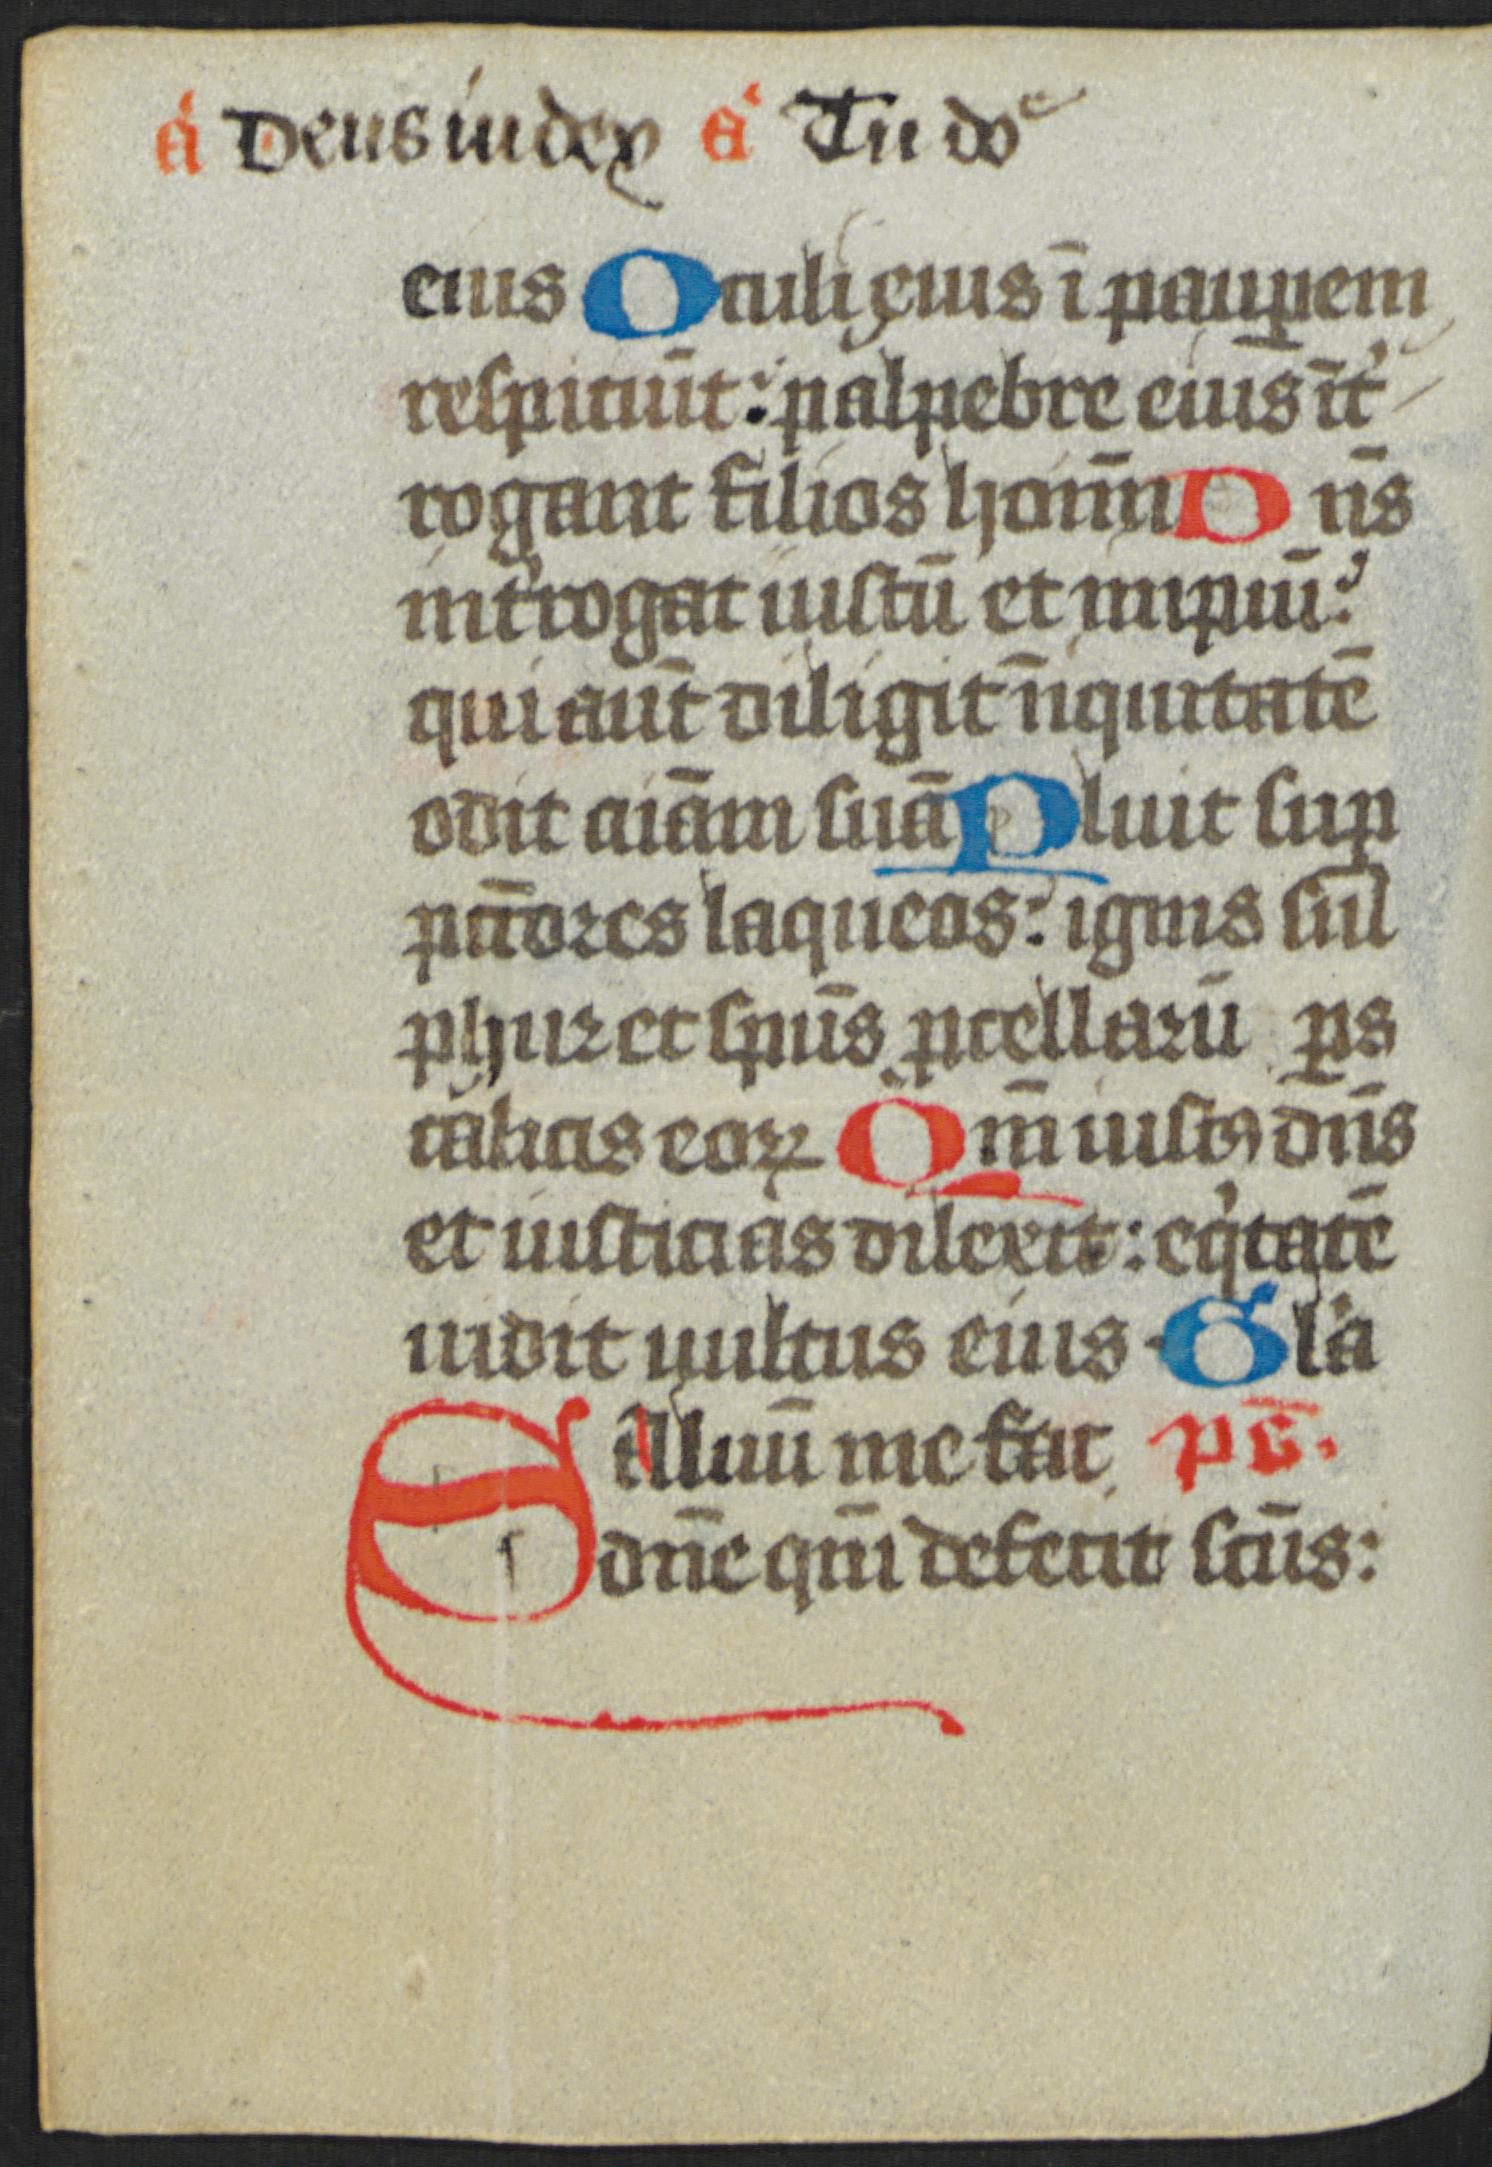 a̾ Deus iudex a̾ Tu doᵉ
eius Oculi eius ī paup̱em
respiciūt: palpebre eius īt᾽
rogant filios homīn Dn̄s
int᾽rogat iustū et impiū:
qui aūt diligit īiquitatē
odit aīam suā Pluit sup̱
pc̄c̄ores laqueos: ignis sul
phur et sp̄us p̱cellarū p̱s
calicis eoꝝ Qm̄ iustꝰ dn̄s
et iusticias dilexit: eq̾tatē
uidit uultus eius Gl᾽a
Saluū me fac ps̄.
dn̄e qm̄ defecit sc̄us: